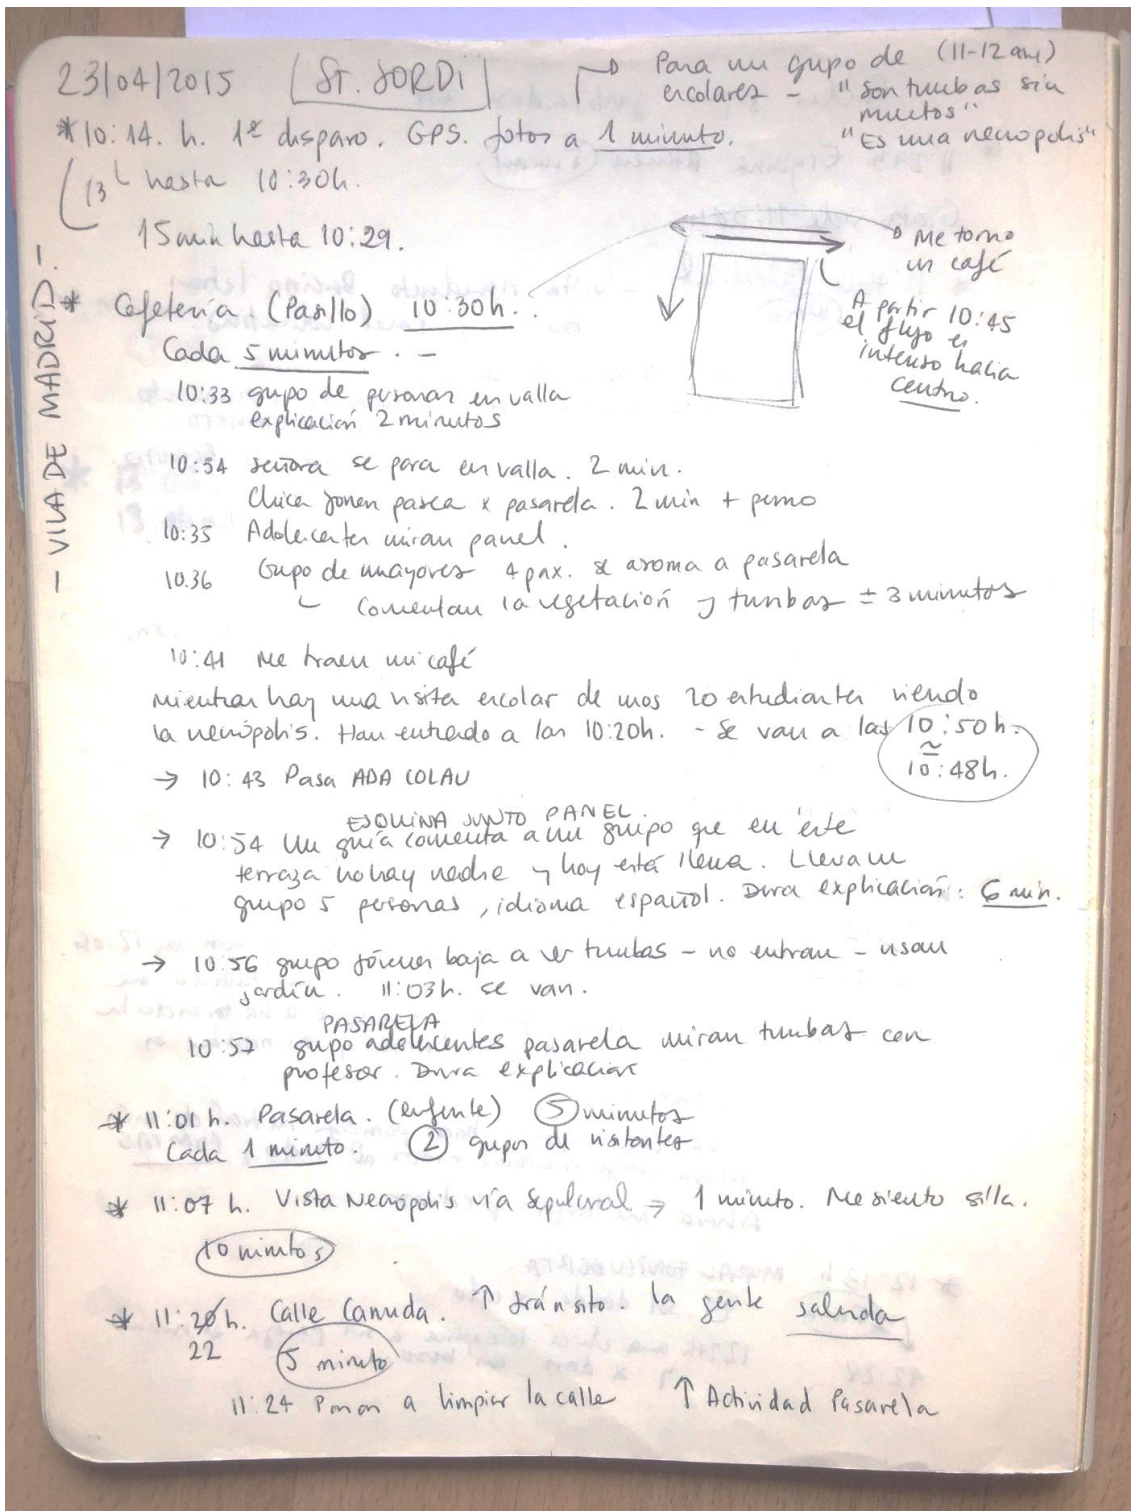 23/04/2015 St. JORDI
Para un grupo de (11-12 am)
escolares - "son tumbas sin
muertos"
"Es una necropolis"
* 10:14. h. 1er disparo. GPS. fotos a 1 minuto.
13 hasta 10:30h.
15 min hasta 10:29.
- VILA DE MADRID.-
Me tomo
un café
A partir 10:45
el flujo es
intenso hacia
centro.
* Cafetería. (Pasillo) 10:30h..
Cada 5 minutos. -
10:33 grupo de personas en valla
explicación 2 minutos
10:34 señora se para en valla. 2 min.
Chica joven pasea x pasarela. 2 min + perro
10:35 Adolescentes miran panel.
10.36 Grupo de mayores 4 pax. se asoma a pasarela
Comentan la vegetación y tumbas ± 3 minutos
10:41 Me traen mi café
Mientras hay una visita escolar de unos 20 estudiantes viendo
la necrópolis. Han entrado a las 10:20h. - Se van a las 10:50h.
≃
10:48h.
→ 10:43 Pasa ADA COLAU
ESQUINA JUNTO PANEL.
→ 10:54 Un guía comenta a un grupo que en este
terraza no hay nadie y hoy está llena. Lleva un
grupo 5 personas, idioma español. Dura explicación: 6 min.
→ 10:56 grupo jóvenes baja a ver tumbas - no entran - usan
jardín. 11:03h. se van.
PASARELA
10:57 grupo adolescentes pasarela miran tumbas con
profesor. Dura explicación
* 11:01 h. Pasarela. (enfrente) 5 minutos
Cada 1 minuto. 2 grupos de visitantes
* 11:07 h. Vista Necrópolis vía sepulcral → 1 minuto. Me siento silla.
10 minutos
* 11:20h. Calle Canuda. ↑ tránsito. la gente saluda
22 5 minuto
11:24 Pasan a limpiar la calle ↑ Actividad Pasarela